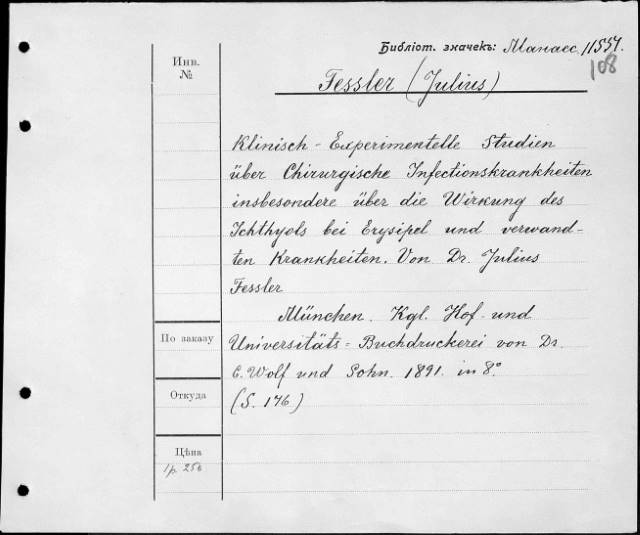 Библіот. значекъ: Манасс. 11554.
108
Инв.
№
Fessler (Julius)
Klinisch - Experimentelle Studien
über Chirurgische Infectionskrankheiten
insbesondere über die Wirkung des
Ichthyols bei Erysipel und verwand-
ten Krankheiten. Von Dr. Julius
Fessler
München. Kgl. Hof- und
Universitäts = Buchdruckerei von Dr.
C. Wolf und Sohn. 1891. in 8°
(S. 176)
По заказу
Откуда
Цѣна
1р. 25к